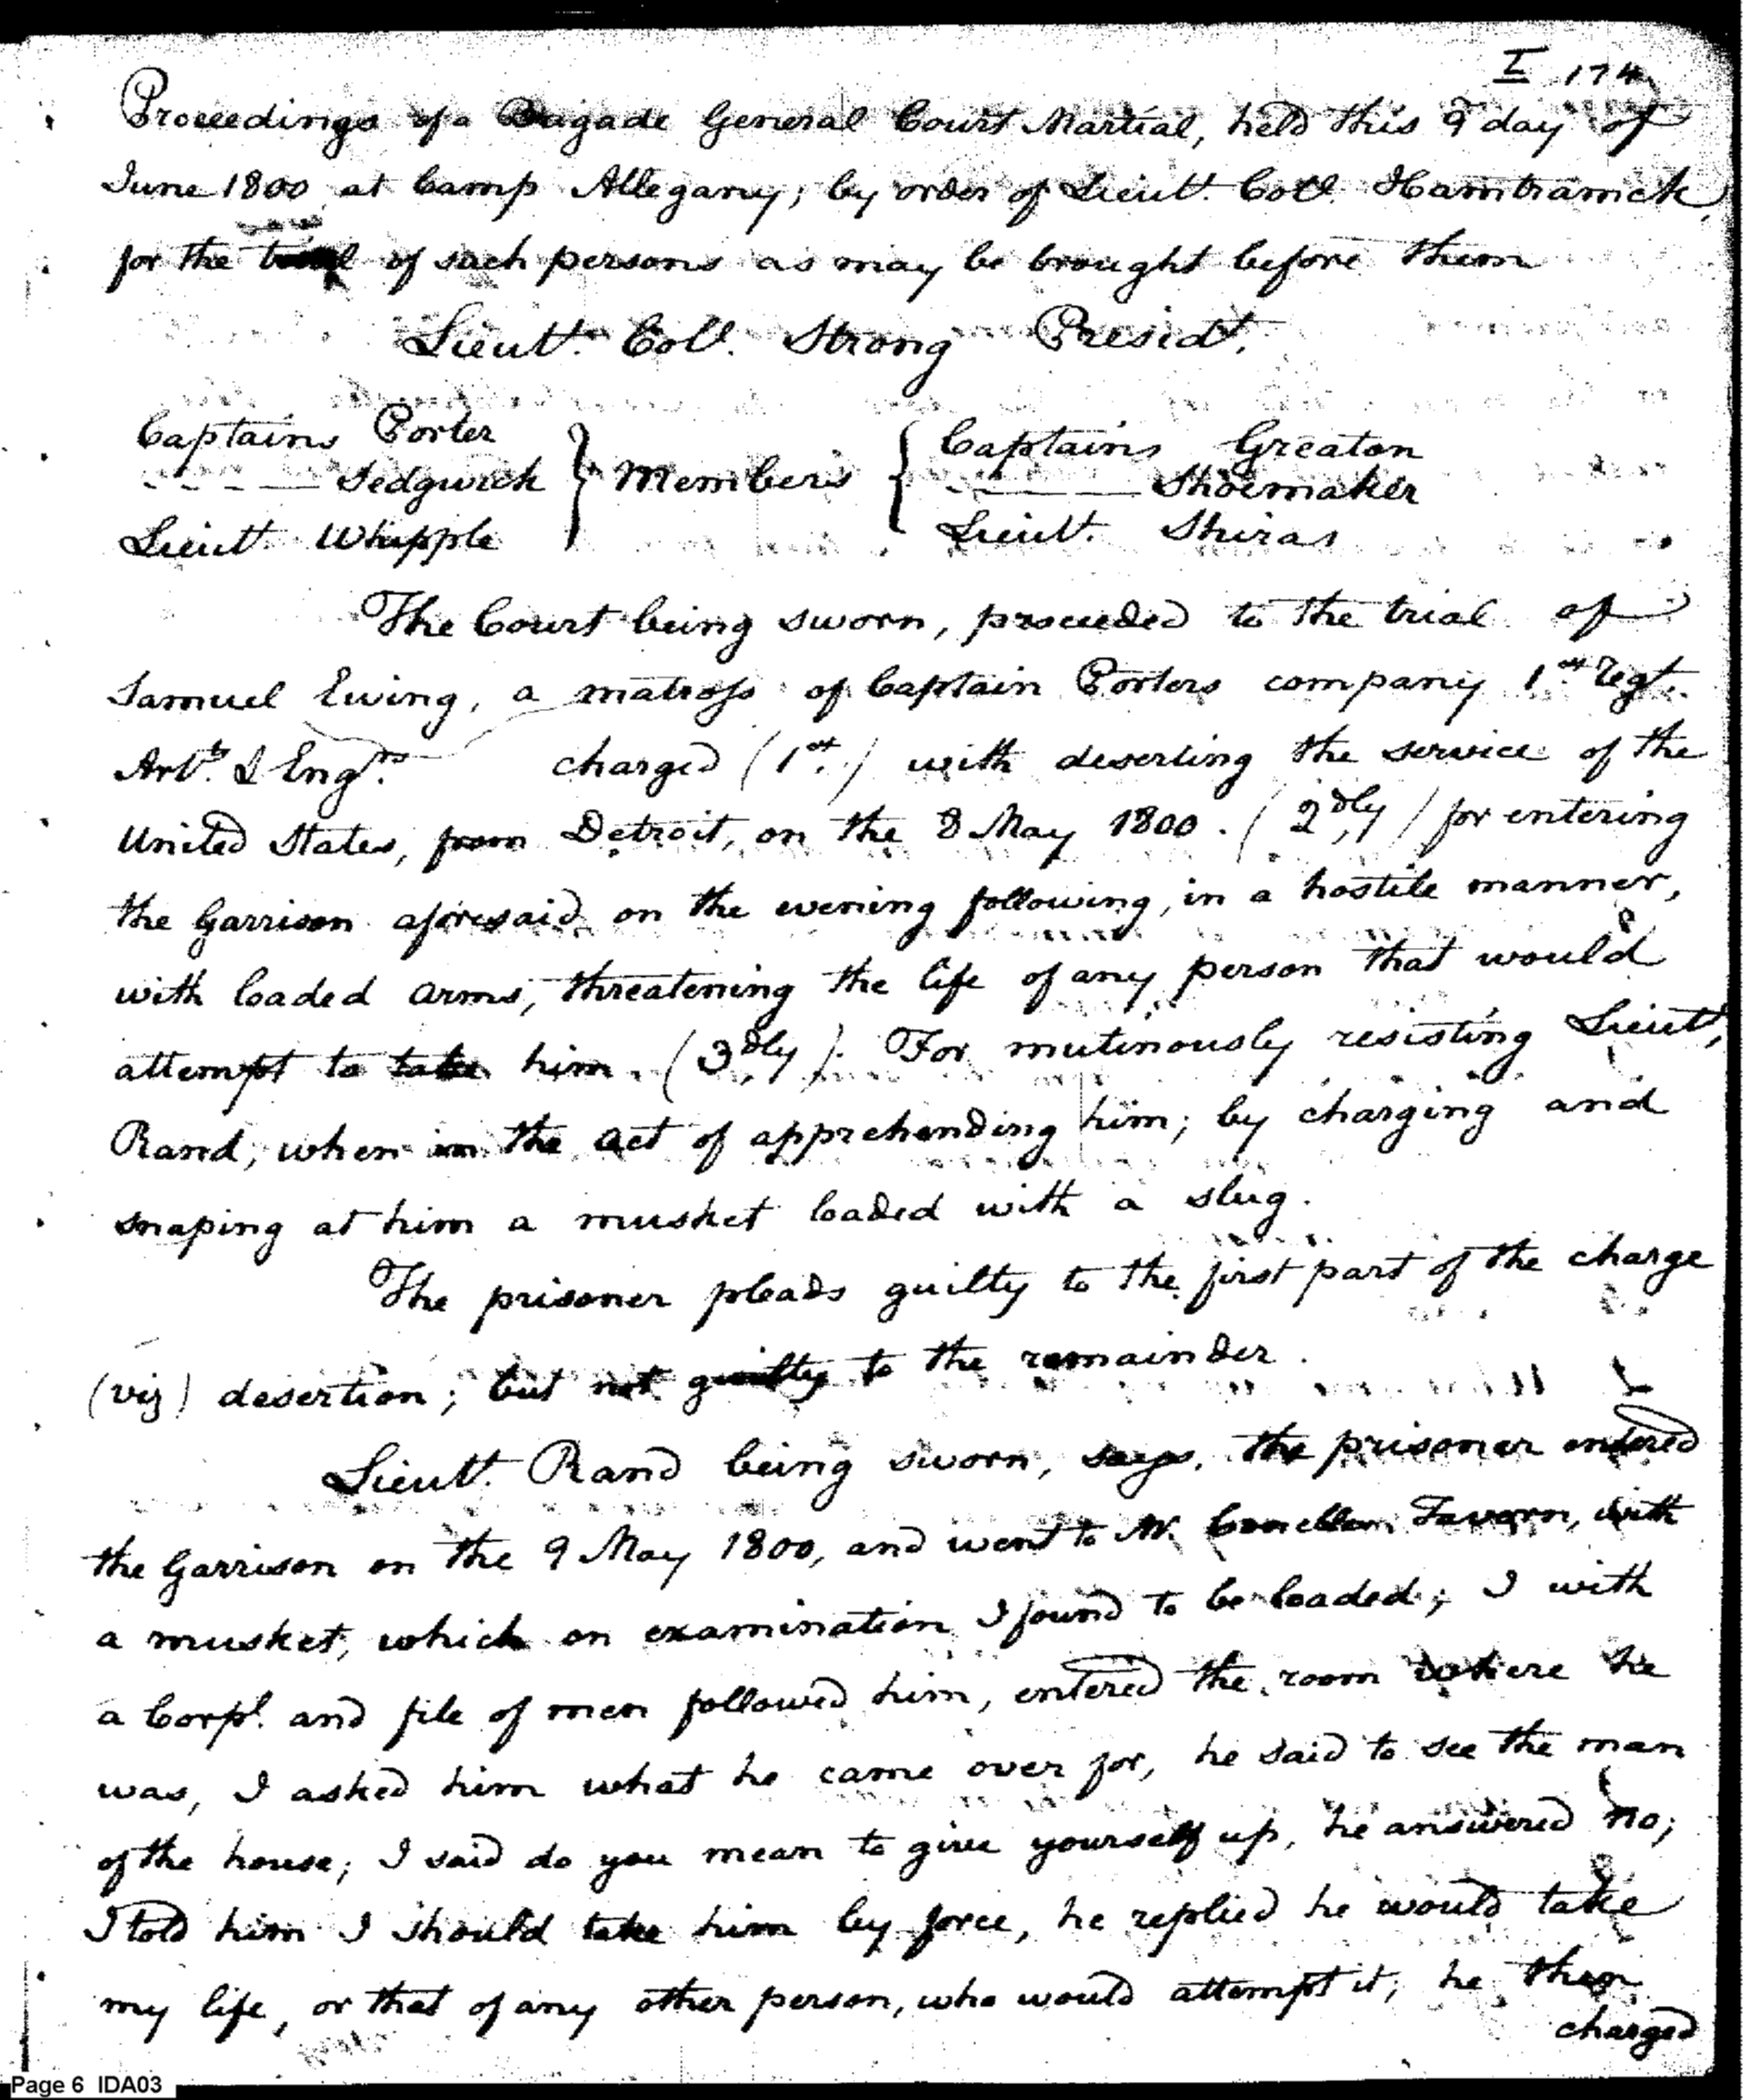 I 174
Proceedings of a Brigade General Court Martial, held this 9 day of
June 1800 at Camp Allegany; by order of Lieut. Coll. Hamtramck,
for the trial of such persons as may be brought before them
Lieutt. Coll. Strong Presidt.
Captains Porter } Members { Captains Greaton
---- Sedgwick ---- Shoemaker
Lieutt. Whipple Lieutt. Shiras
The Court being sworn, proceeded to the trial of
Samuel Ewing, a matross of Captain Porters company 1st. regt.
Arts. & Engrs. charged (1st.) with deserting the service of the
United States, from Detroit, on the 8 May 1800. (2dly) for entering
the Garrison aforesaid on the evening following, in a hostile manner,
with loaded arms, threatening the life of any person that would
attempt to take him. (3dly). For mutinously resisting Lieutt,
Rand, when in the act of apprehending him; by charging and
snaping at him a musket loaded with a slug.
The prisoner pleads guilty to the first part of the charge
(viz) desertion; but not guilty to the remainder.
Lieutt. Rand being sworn, says, the prisoner entered
the Garrison on the 9 May 1800, and went to Tavern, with
a musket, which on examination I found to be loaded; I with
a Corpl. and file of men followed him, entered the room where he
was, I asked him what he came over for, he said to see the man
of the house; I said do you mean to give yourself up, he answered no;
I told him I should take him by force, he replied he would take
my life, or that of any other person, who would attempt it; he then
charged
Page 6 IDA03